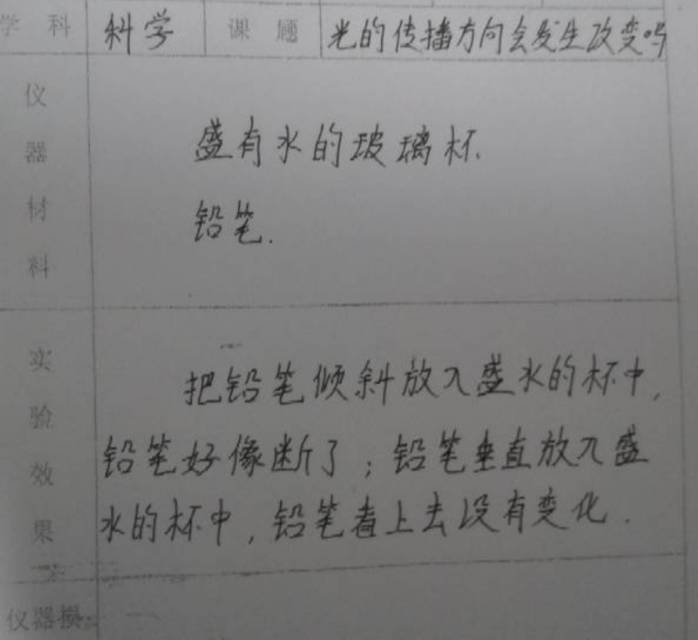 学科 科学 课题 光的传播方向会发生改变吗
仪器材料
盛有水的玻璃杯.
铅笔.
实验效果
把铅笔倾斜放入盛水的杯中,
铅笔好像断了;铅笔垂直放入盛
水的杯中,铅笔看上去没有变化.
仪器损